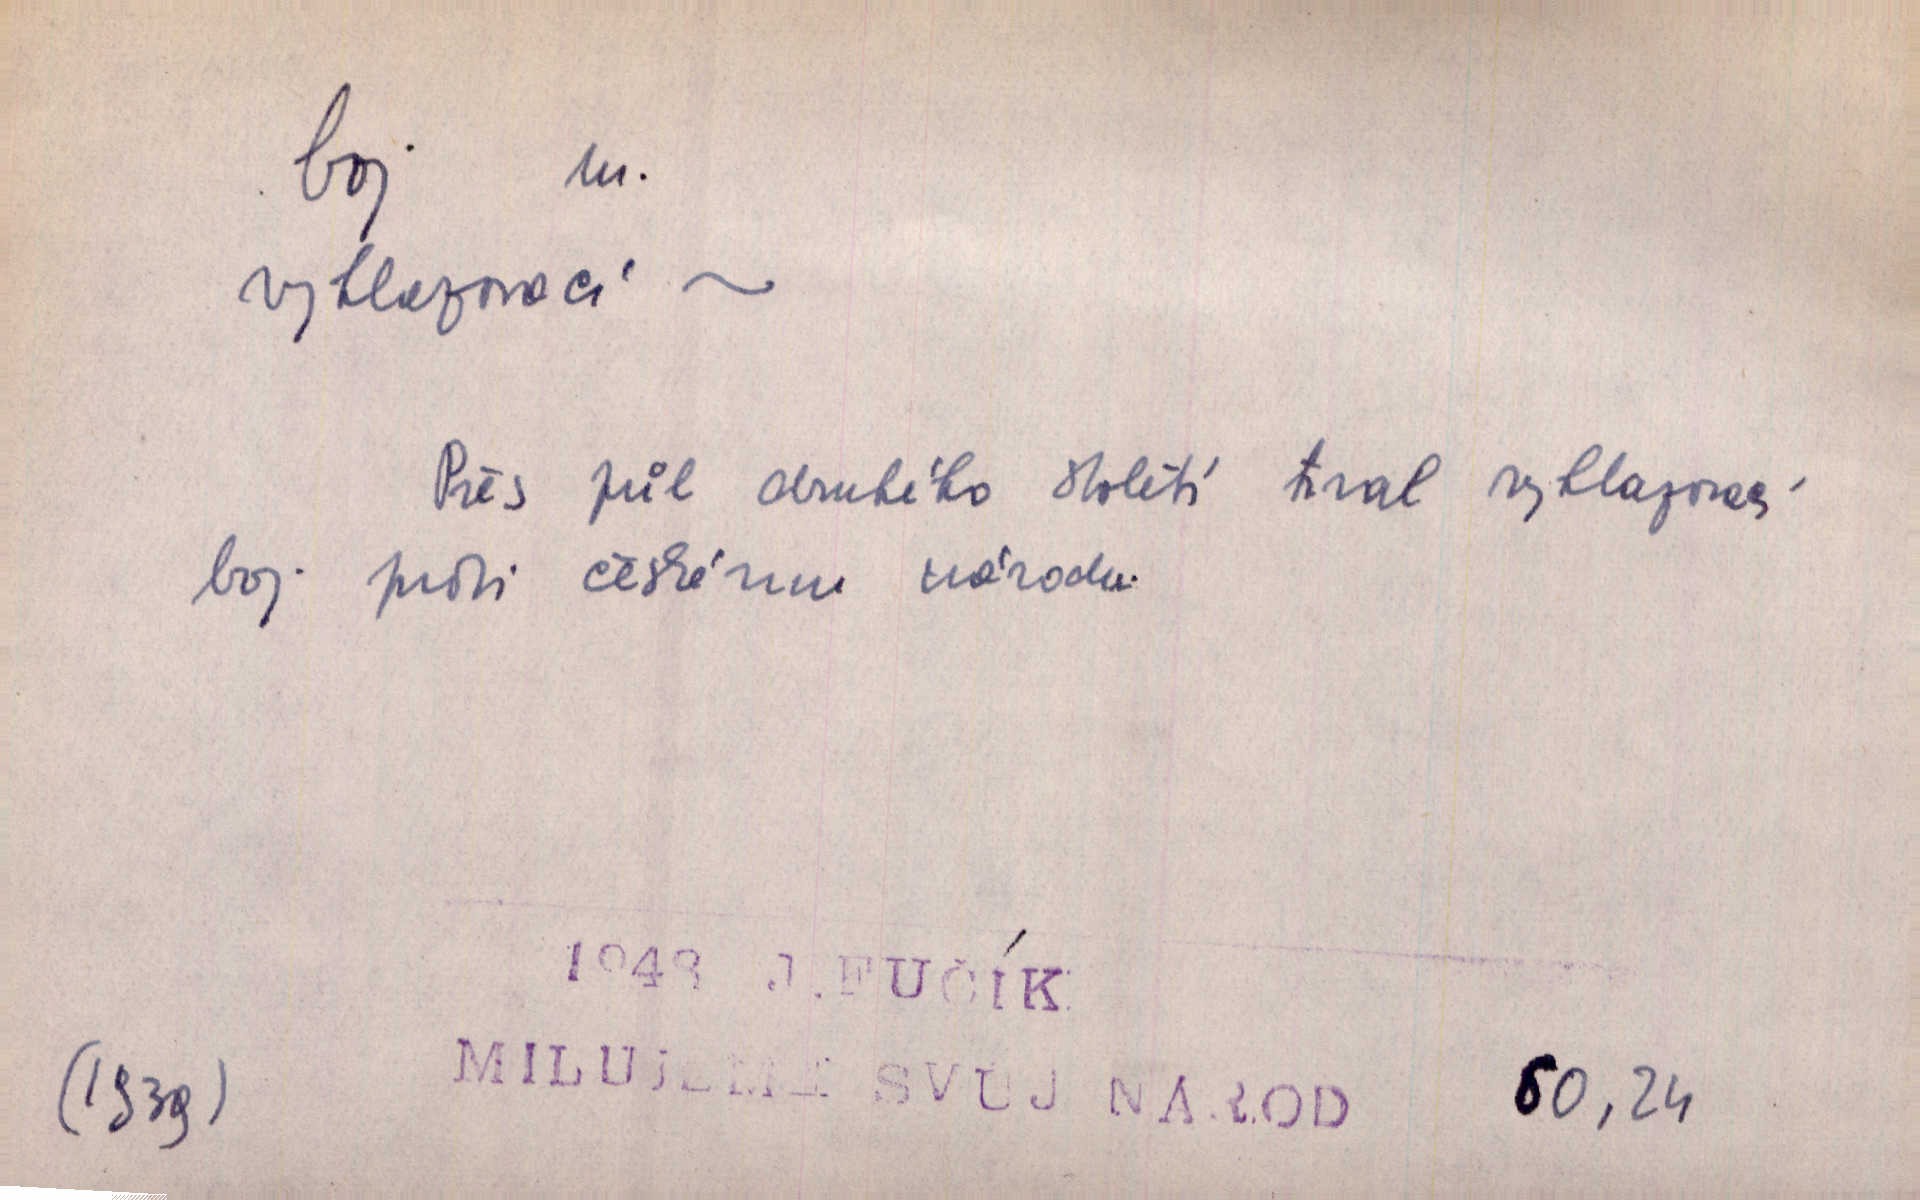 boj m.
vyhlazovací ~
Přes půl druhého století trval vyhlazovací
boj proti českému národu.
1948 J.FUČÍK
MILUJEME SVUJ NAROD
(1939) 60,24